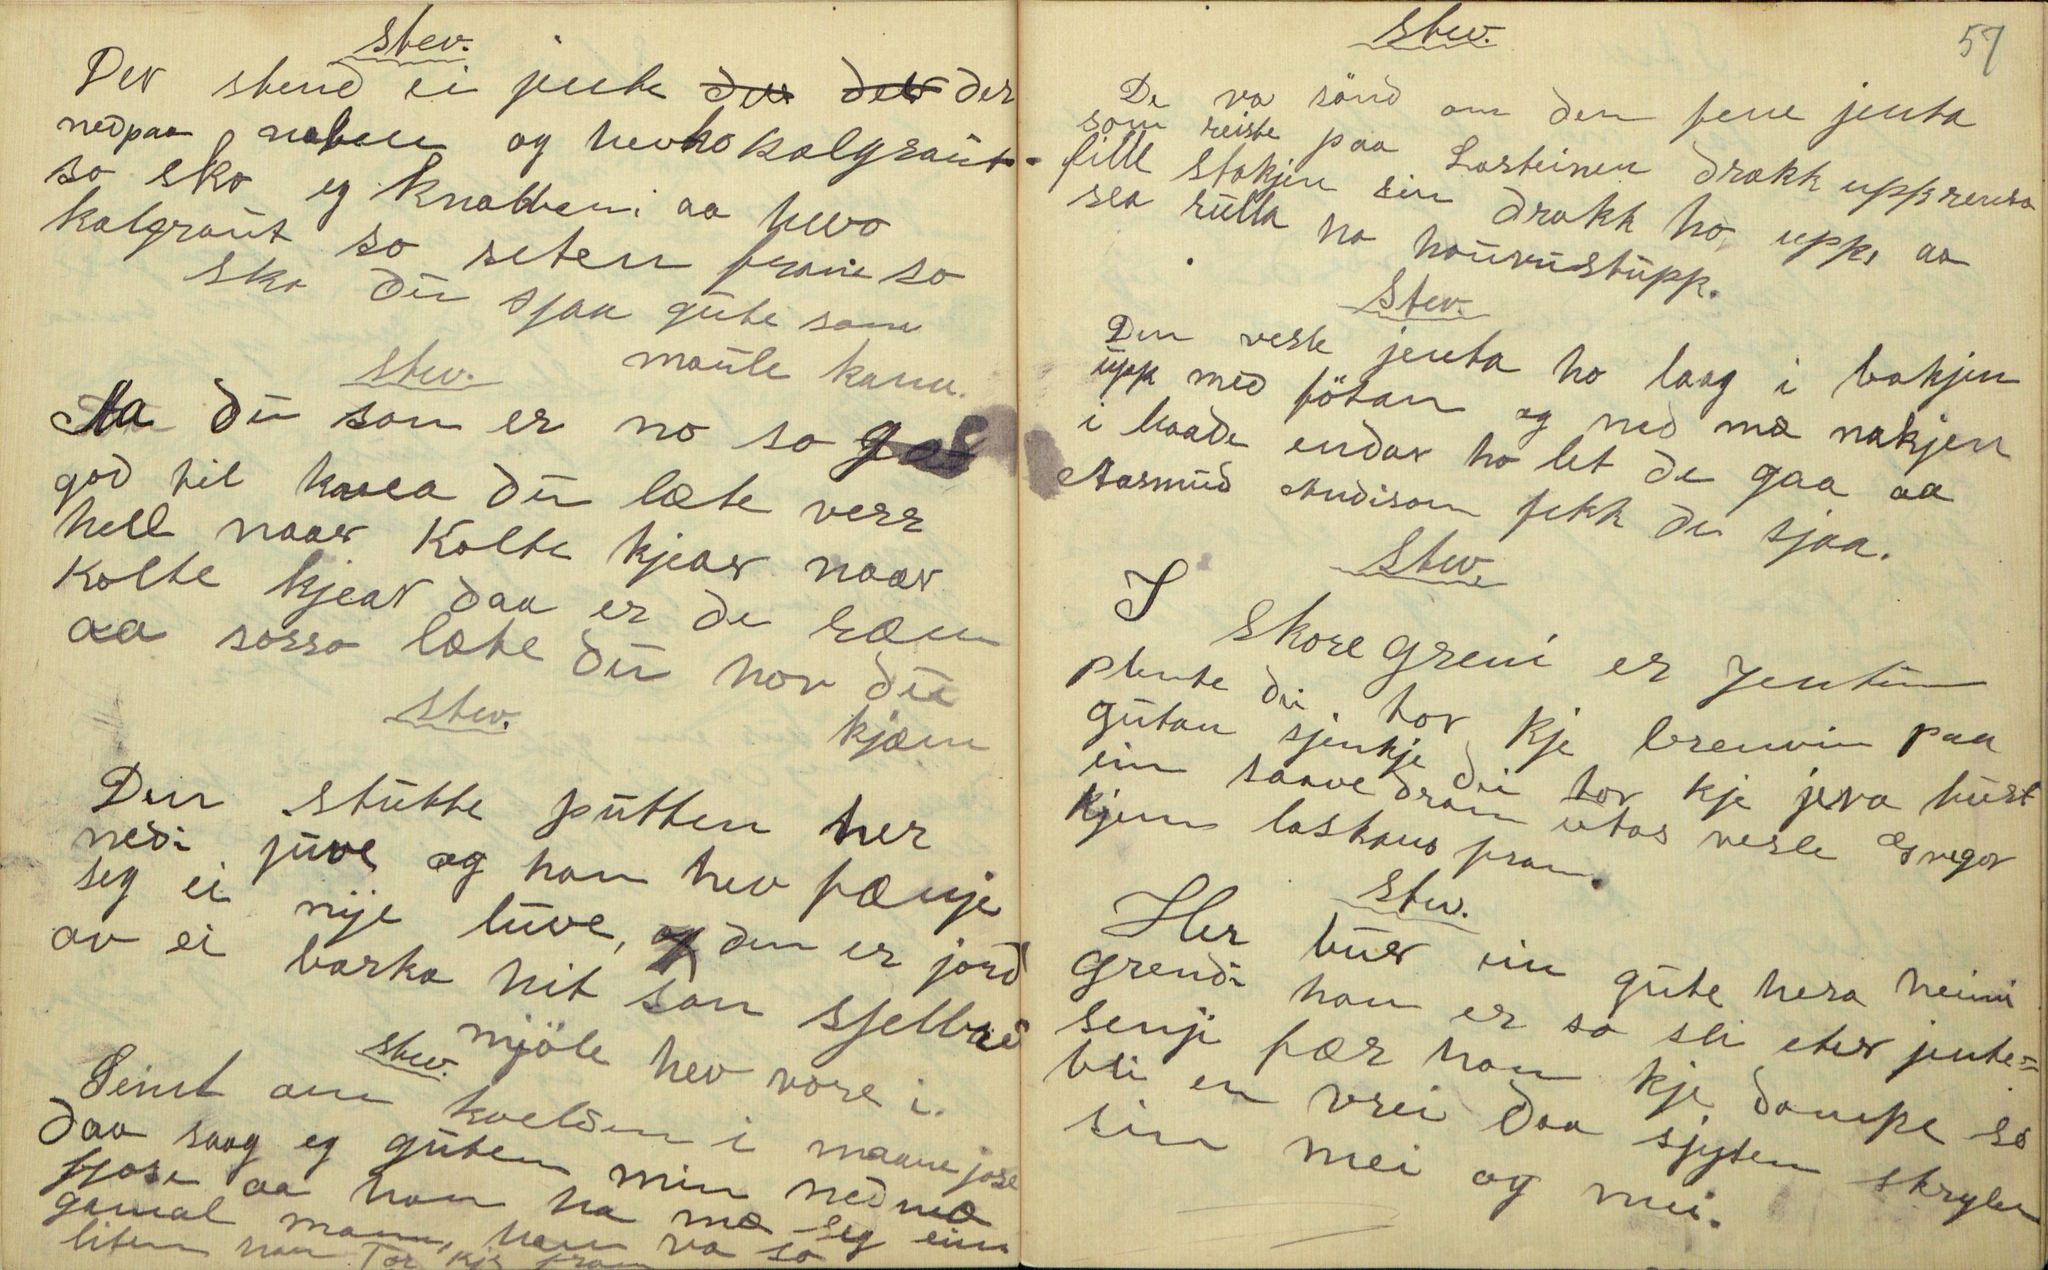 Stev.
Der stend ei jente der der der
nedpaa naben og hevko kalgraut
so sko eg knabben i aa hevo
kalgraut so seten franie so
sko du sjaa gute som
maule kann.
Stev.
Aa du som er no so god
god til kaaea du læte verr
hell naar Kolte kjear naar
Kolte kjear daa er de ræu
aa sosso læte du nor du
kjæm
Stev.
Den stutte putten her
nedi juve og han hev fænje
seg ei nije luve, og den er jord
av ei barka hit som sjelbue
mjöle hev vore i.
Stev.
Seint om kvelden i maanejose
daa saag eg guten min nedmæ
fjose aa han ha mæ seg ein
gamal mann, han va so
liten han Tor kje fram
57
Stev.
De va sönd om den fene jenta
som reiste paa Larsteinen drakk upp rensa
fill stakjen sin drakk ho upp, aa
sea rulla ho houvustupp.
Stev.
Den vesle jenta ho laag i bakjen
upp med fötan og ned mæ nakjen
i baade endar ho let de gaa aa
Aasmud Audison fekk de sjaa.
Stev.
I Skoregreni er Jentun
plente dei tor kje brenvin paa
gutan sjenkje dei tor kje jera hust
ein saave dram utas vesle Gregor
kjem laskaus fram.
Stev.
Her bur ein gute hera heimi
Grendi han er so sli eter jente=
senji fær han kje dampe so
bli en vrei daa sjyten skrylen
sin mei og mei.